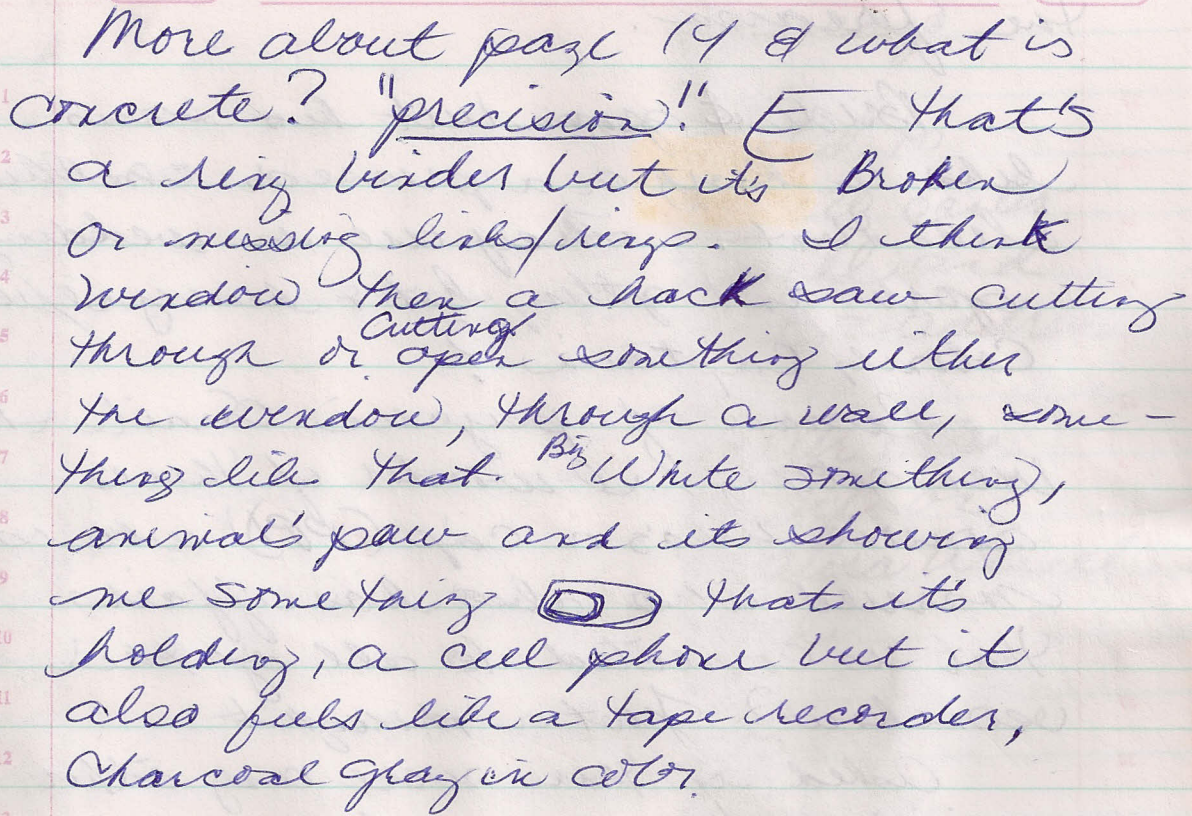 More about page 14 & what is
concrete? "precision!" E that's
a ring binder but it's Broken
or missing links/rings. I think
window then a hack saw cutting
through or cutting open something either
the window, through a wall, some-
thing like that. Big White something,
animal's paw and it's showing
me something that it's
holding, a cell phone but it
also feels like a tape recorder,
Charcoal Gray in color.